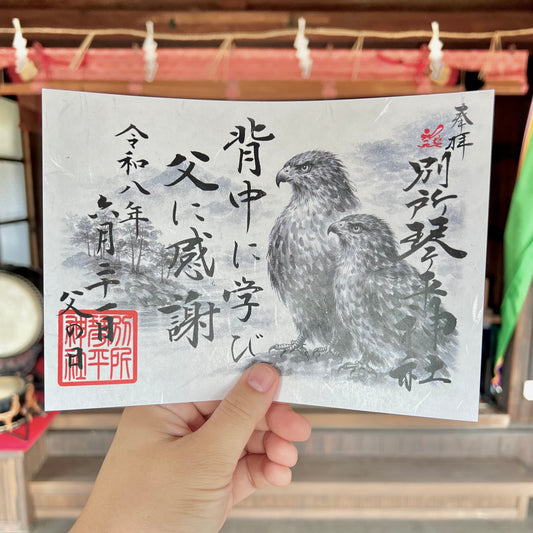 奉拝
別所琴平神社
背中に学び
父に感謝
令和八年
六月二十一日
父の日
別所
琴平
神社